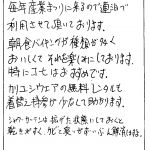 毎年産業まつりに来るので連泊で
利用させて頂いております。
朝食バイキングが種類が多く
おいしくて それを楽しみにしております。
特にゴモはおすすめです。
かりユシウェアの無料レンタルも
着替え持参が少なくて助かります。
シャワーカーテンは拡がった状態にしておくと
乾きがはやく、カビて臭いがきずい